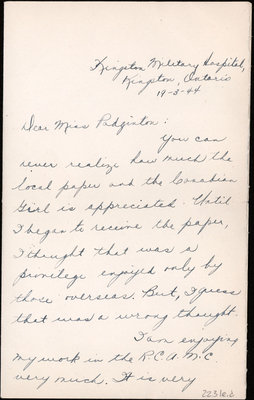 Kingston Military Hospital,
Kingston, Ontario
19-3-44
Dear Miss Padginton:
You can
never realize how much the
local paper and the Canadian
Girl is appreciated. Until
I began to receive the paper,
I thought that was a
privilege enjoyed only by
those overseas. But, I guess
that was a wrong thought.
I am enjoying
my work in the R.C.A.M.C.
very much. It is very